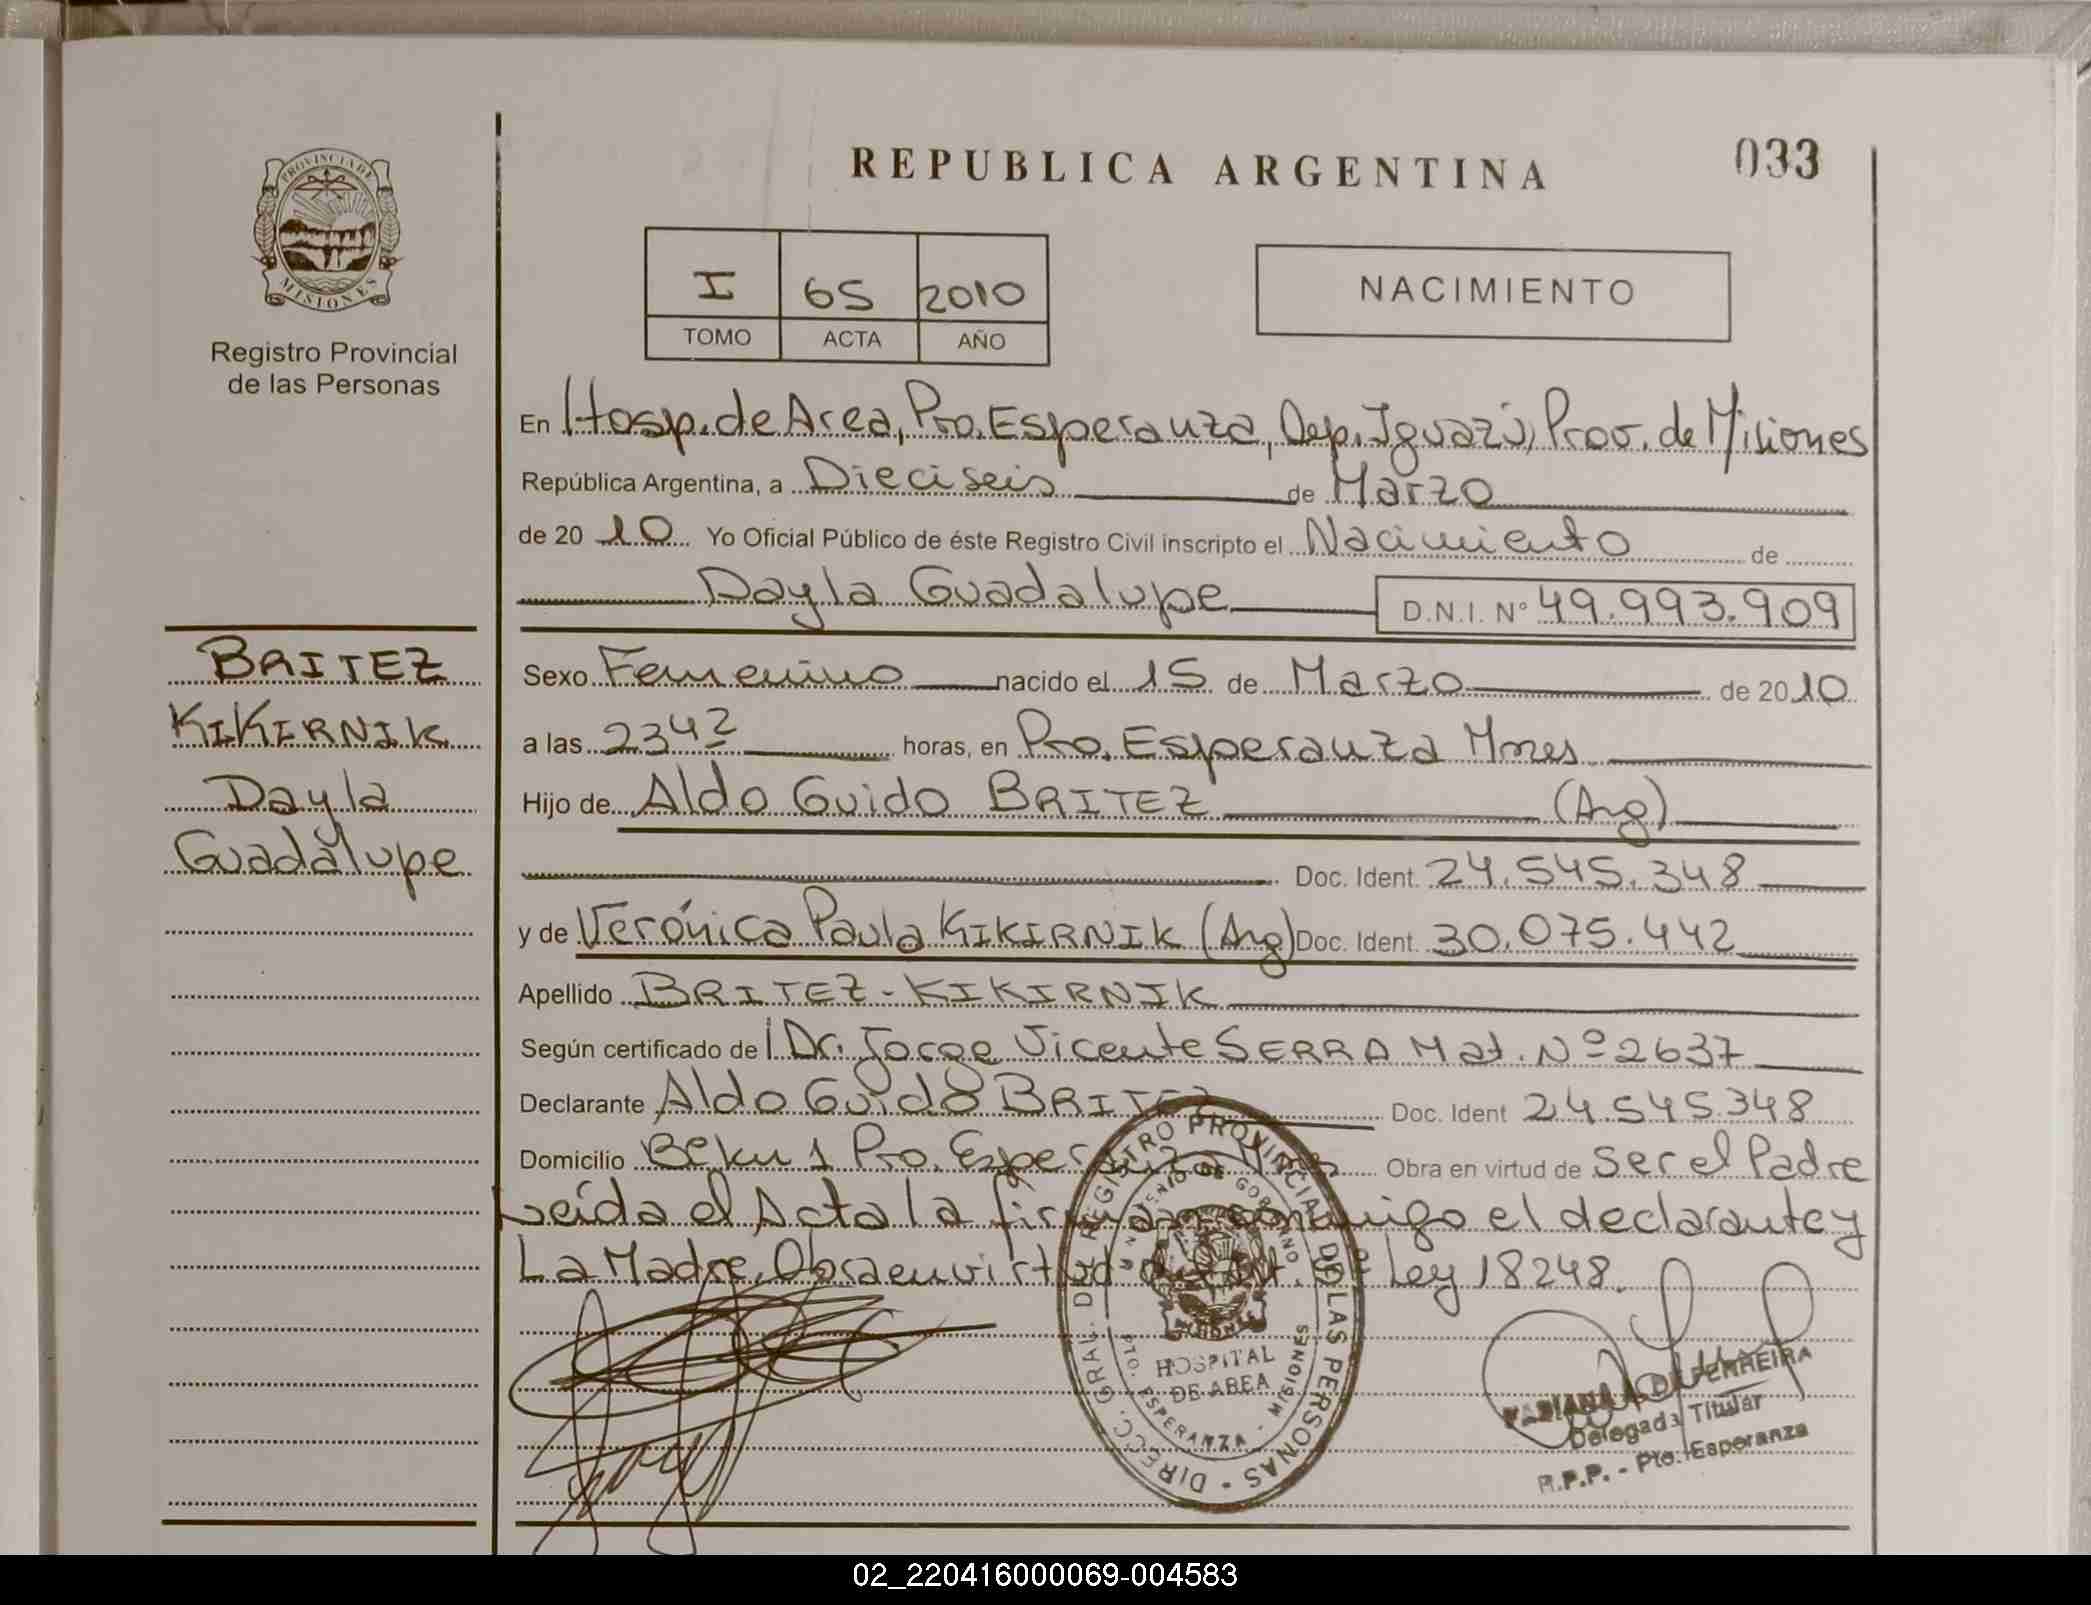 REPUBLICA ARGENTINA
033
PROVINCIA DE
MISIONES
Registro Provincial
de las Personas
I 65 2010
TOMO ACTA AÑO
NACIMIENTO
En Hosp. de Area, Pto. Esperanza, Dep. Iguazú, Prov. de Misiones
República Argentina, a Dieciseis de Marzo
de 20 10 Yo Oficial Público de éste Registro Civil inscripto el Nacimiento de
Dayla Guadalupe D.N.I. Nº 49.993.909
BRITEZ
KIKIRNIK
Dayla
Guadalupe
Sexo Femenino nacido el 15 de Marzo de 2010
a las 23 42 horas, en Pto. Esperanza Mnes
Hijo de Aldo Guido BRITEZ (Arg)
Doc. Ident. 24.545.348
y de Verónica Paula KIKIRNIK (Arg) Doc. Ident. 30.075.442
Apellido BRITEZ-KIKIRNIK
Según certificado de Dr. Jorge Vicente SERRA Mat. Nº 2637
Declarante Aldo Guido BRITEZ Doc. Ident 24.545.348
Domicilio Beku 1 Pto. Esperanza Mnes Obra en virtud de Ser el Padre
Leída el Acta la firman conmigo el declarante y
La Madre. Obra en virtud Ley 18248.
DIRECC. GRAL. DE REGISTRO PROVINCIAL DE LAS PERSONAS
MINISTERIO DE GOBIERNO
HOSPITAL
DE AREA
PTO. ESPERANZA - MISIONES
FERREIRA
Delegada Titular
R.P.P. - Pto. Esperanza
02_220416000069-004583